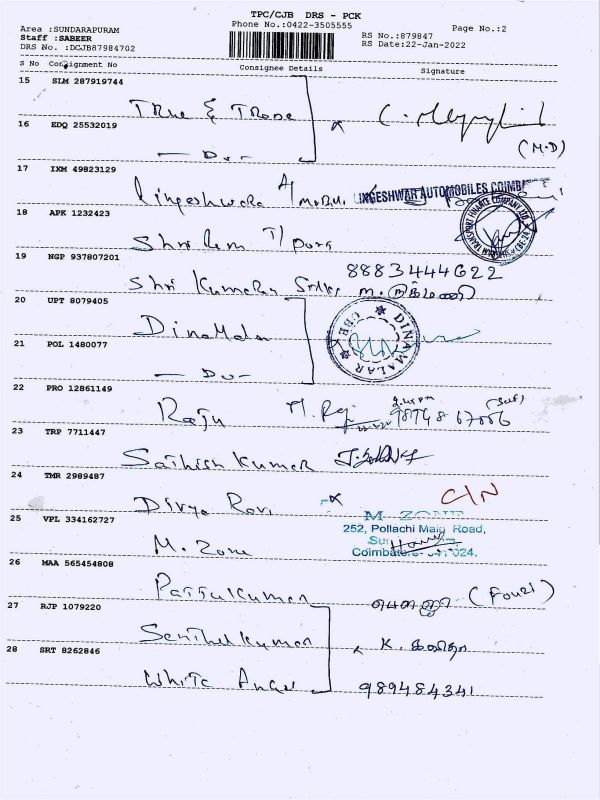 TPC/CJB DRS - PCK
Area :SUNDARAPURAM Phone No.:0422-3505555 Page No.:2
Staff :SABEER RS No.:879847
DRS No. :DCJB87984702 RS Date:22-Jan-2022
S No Consignment No Consignee Details Signature
15 SLM 287919744
True & Trade
16 EDQ 25532019
(M.D)
— Do —
17 IXM 49823129
Lingeshwara A/ INGESHWAR AUTOMOBILES COIMB
18 APK 1232423
Shri Ram T/port
19 NGP 937807201
8883444622
Shri Kumaran Silks
20 UPT 8079405
Dinamalar DINAMALAR CBE
21 POL 1480077
— Do —
22 PRO 12861149
Raju M. Raju (Self)
23 TRP 7711447
Sathish Kumar
24 TMR 2989487
Divya Ravi C/N
25 VPL 334162727
M-ZONE
252, Pollachi Main Road,
M. Zone Coimbatore- 641 024.
26 MAA 565454808
Pattukumar
27 RJP 1079220
Senthil Kumar K. கவிதா
28 SRT 8262846
White Angel 989484341